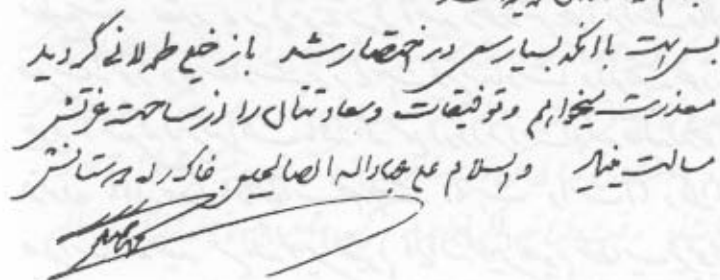 بس است با آنکه بسیار سعی در اختصار شد باز خیلی طولانی گردید
معذرت میخواهم و توفیقات و سعادتتان را از ساحت عزتش
مسألت مینماید والسلام علی عباد الله الصالحین خاک راه دوستانش